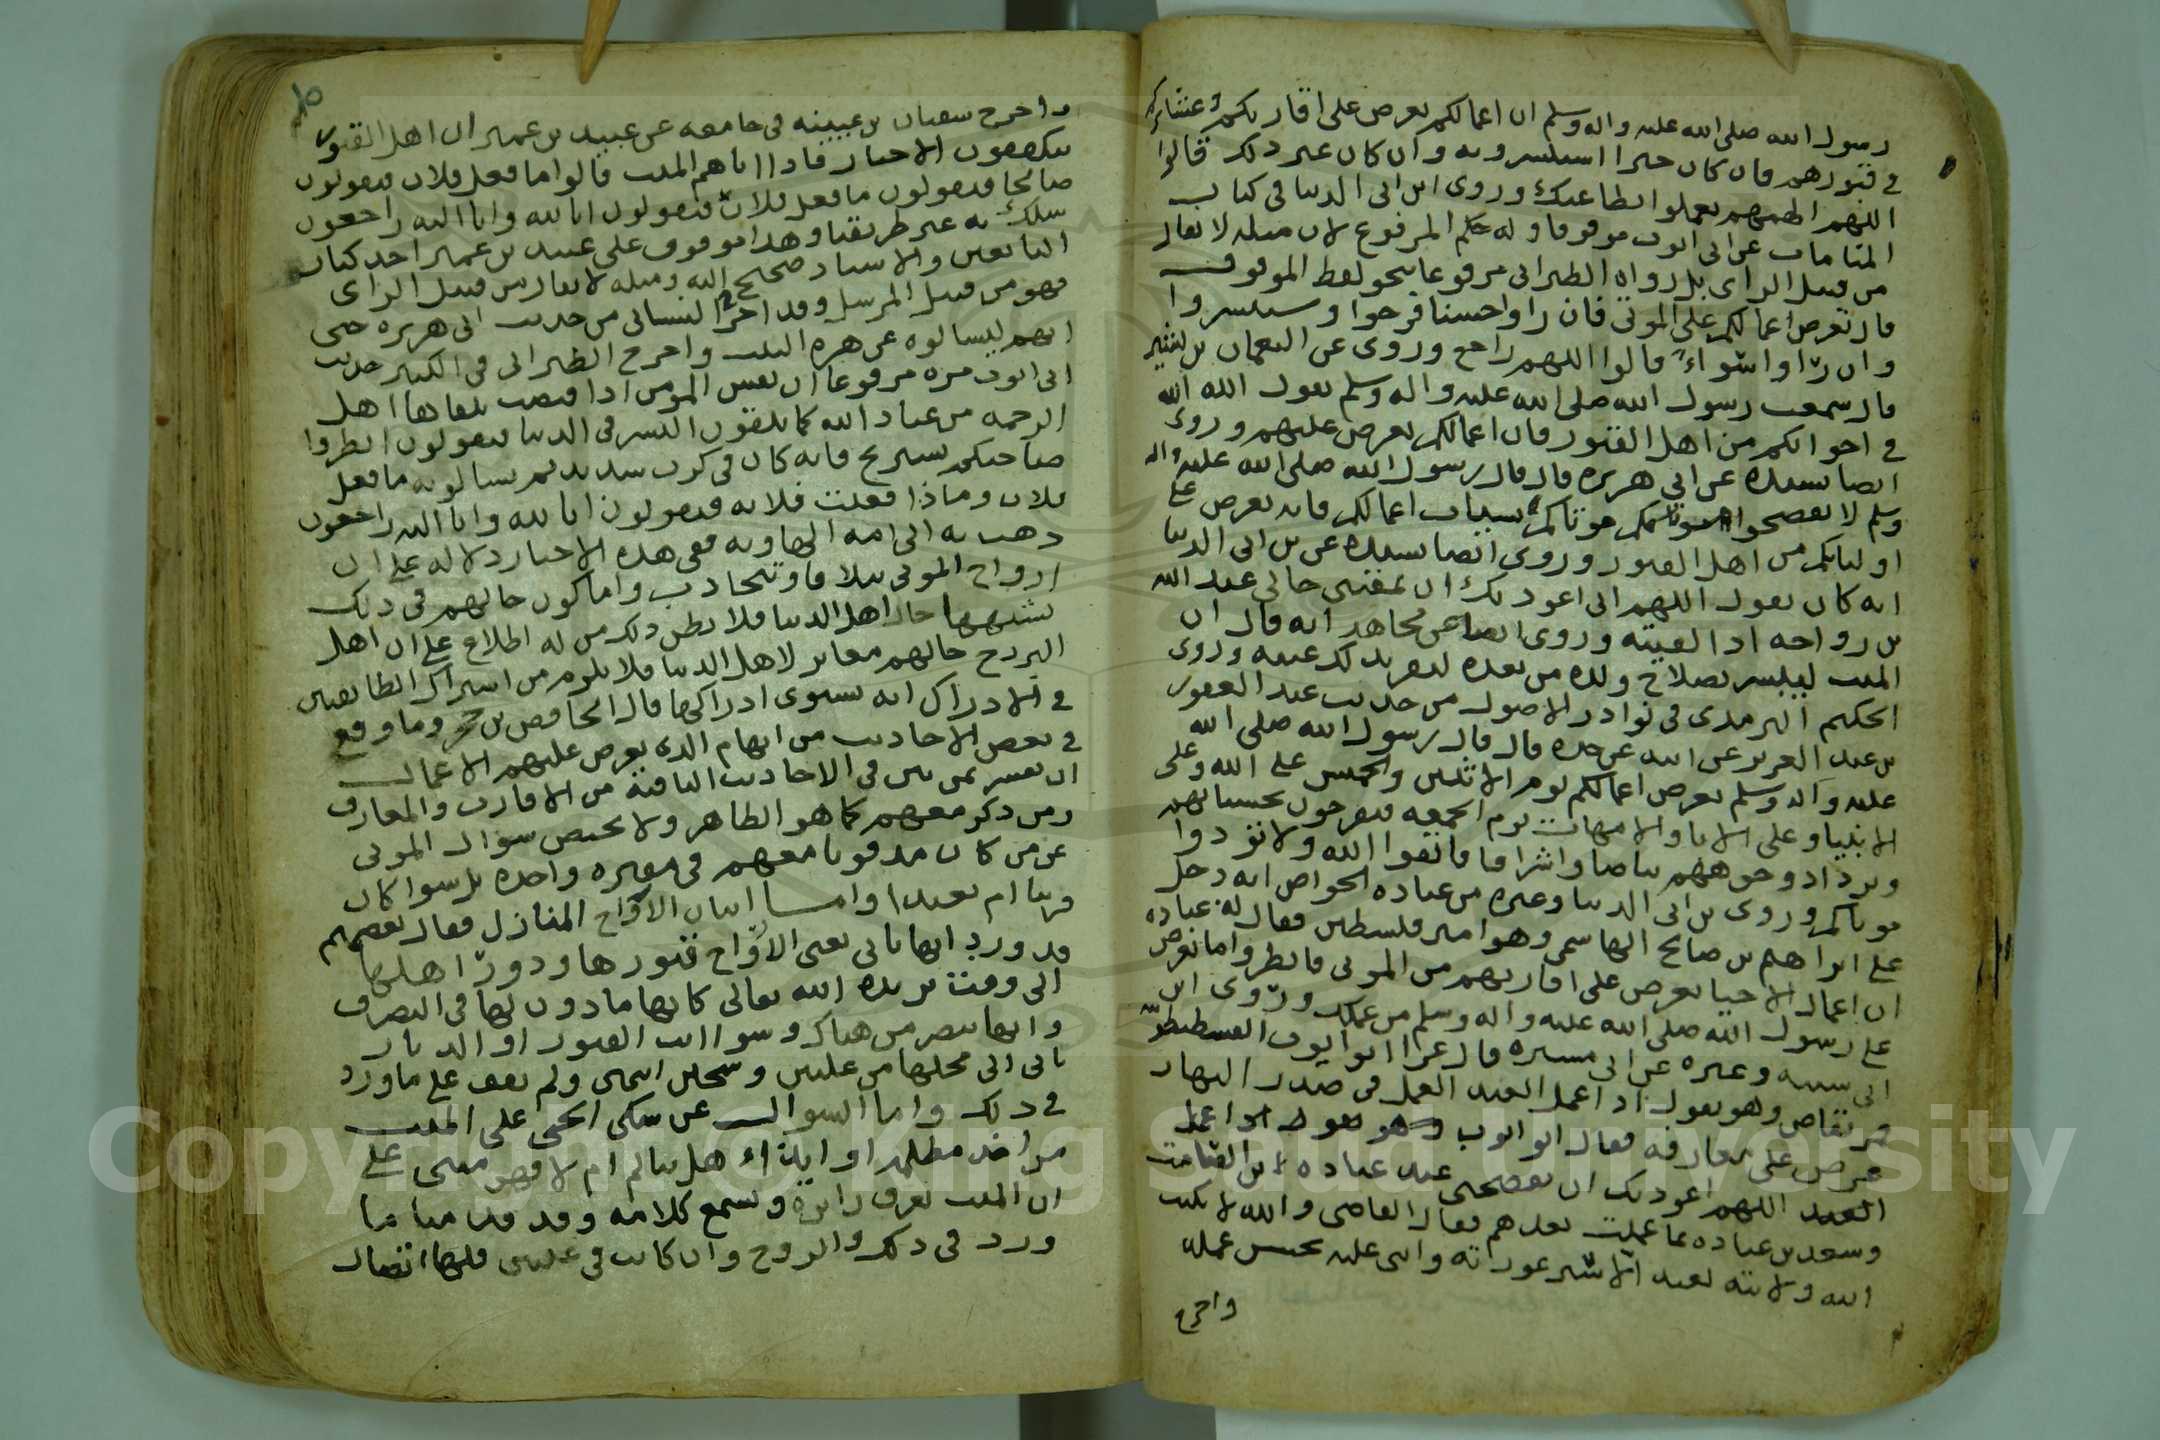 رسول الله صلى الله عليه واله وسلم ان اعمالكم تعرض على اقاربكم وعشائركم
في قبورهم فان كان خيرا استبشروا به وان كان غير ذلك قالوا
اللهم الهمهم يعملوا بطاعتك وروى ابن ابي الدنيا في كتاب
المنامات عن ابي ايوب موقوفا وله حكم المرفوع لان مثله لا يقال
من قبل الراى بل رواه الطبرانى مرفوعا بنحو لفظ الموقوف
قال تعرض اعمالكم على الموتى فان راوا حسنا فرحوا وستبشروا
وان راوا سواء قالوا اللهم راجع وروى عن النعمان بن بشير
قال سمعت رسول الله صلى الله عليه واله وسلم يقول الله الله
في اخوانكم من اهل القبور فان اعمالكم تعرض عليهم وروى
ايضا بسنده عن ابي هريره قال قال رسول الله صلى الله عليه واله
وسلم لا تفضحوا موتاكم بسيئات اعمالكم فانه تعرض على
اوليائكم من اهل القبور وروى ايضا بسنده عن بن ابي الدنيا
انه كان يقول اللهم انى اعوذ بك ان يمقتنى خالي عبد الله
بن رواحه اذا لقيته وروى ايضا عن مجاهد انه قال ان
الميت ليبشر بصلاح ولده من بعده لتقر بذلك عينه وروى
الحكيم الترمذى في نوادر الاصول من حديث عبد الغفور
بن عبد العزيز عن ابيه عن جده قال قال رسول الله صلى الله
عليه واله وسلم تعرض اعمالكم يوم الاثنين والخميس على الله وعلى
الانبيا وعلى الابا والامهات يوم الجمعه فيفرحون بحسناتهم
وتزداد وجوههم بياضا واشراقا فاتقوا الله ولا توذوا
موتاكم وروى بن ابي الدنيا وغيره من عباده الخواص انه دخل
على ابراهيم بن صالح الهاشمى وهو امير فلسطين فقال له عباده
ان اعمال الاحيا تعرض على اقاربهم من الموتى فانظر واما تعرض
على رسول الله صلى الله عليه واله وسلم من عملك وروى ابن
ابي شيبه وغيره عن ابي ميسره قال غزا ابو ايوب القسطنطنيه
فمر بقاص وهو يقول اذا عمل العبد العمل في صدر النهار
عرض على معارفه فقال ابو ايوب
العبد اللهم اعوذ بك ان تفضحنى عند عباده بن الصامت
وسعد بن عباده بما عملت بعدهم فقال القاضى والله لا يكتب
الله ولايته لعبد الا ستر عوراته واثنى عليه بحسن عمله
واخرج
واخرج سفيان بن عيينه في جامعه عن عبيد بن عمير ان اهل القبور
يتكففون الاخبار فاذا اتاهم الميت قالوا ما فعل فلان فيقولون
صالحا فيقولون ما فعل فلان فيقولون انا لله وانا اليه راجعون
سلك به غير طريقنا وهذا موقوف على عبيد بن عمير احد كبار
التابعين والاسناد صحيح اليه ومثله لا يقال من قبل الراى
فهو من قبيل المرسل وقد اخرج النسائى من حديث ابى هريره حتى
انهم ليسالوه عن هره البيت واخرج الطبرانى في الكبير حديث
ابى ايوب مره مرفوعا ان نفس المومن اذا قبضت تلقاها اهل
الرحمه من عباد الله كما يلقون البشر في الدنيا فيقولون انظروا
صاحبكم يستريح فانه كان في كرب شديد ثم يسالونه ما فعل
فلان وماذا فعلت فلانه فيقولون انا لله وانا اليه راجعون
ذهب به الى امه الهاويه ففى هذه الاخبار دلاله على ان
ارواح الموتى تتلاقا وتتحادث واما كون حالهم في ذلك
يشبهها حال اهل الدنيا فلا يظن ذلك من له اطلاع على ان اهل
البرزخ حالهم مغاير لاهل الدنيا فلا يلزم من اشتراك الطائفتين
في الادراك انه يستوى ادراكها قال الحافظ بن حجر وما وقع
في بعض الاحاديث من ابهام الذى تعرض عليهم الاعمال
ان يفسر بمن بين في الاحاديث الباقية من الاقارب والمعارف
ومن ذكر معهم كما هو الظاهر ولا يختص سؤال الموتى
عن من كان مدفونا معهم في مقبره واحده بل سوا كان
قريبا ام بعيدا واما اتيان الارواح المنازل فقال بعضهم
قد ورد انها تاتى يعنى الارواح قبورها ودور اهلها
الى وقت يريده الله تعالى كانها ماذون لها في التصرف
وانها تبصر من هناك وسوا اتت القبور او الديار
تاتى الى محلها من عليين وسجين انتهى ولم نقف على ما ورد
في ذلك واما السؤال عن شكى الحى على الميت
من اخذ مظلمه او ايذاء هل يتالم ام لا فهو مبنى على
ان الميت يعرف زائره ويسمع كلامه وقد قدمنا ما
ورد في ذلك والروح وان كانت في عليين فلها اتصال